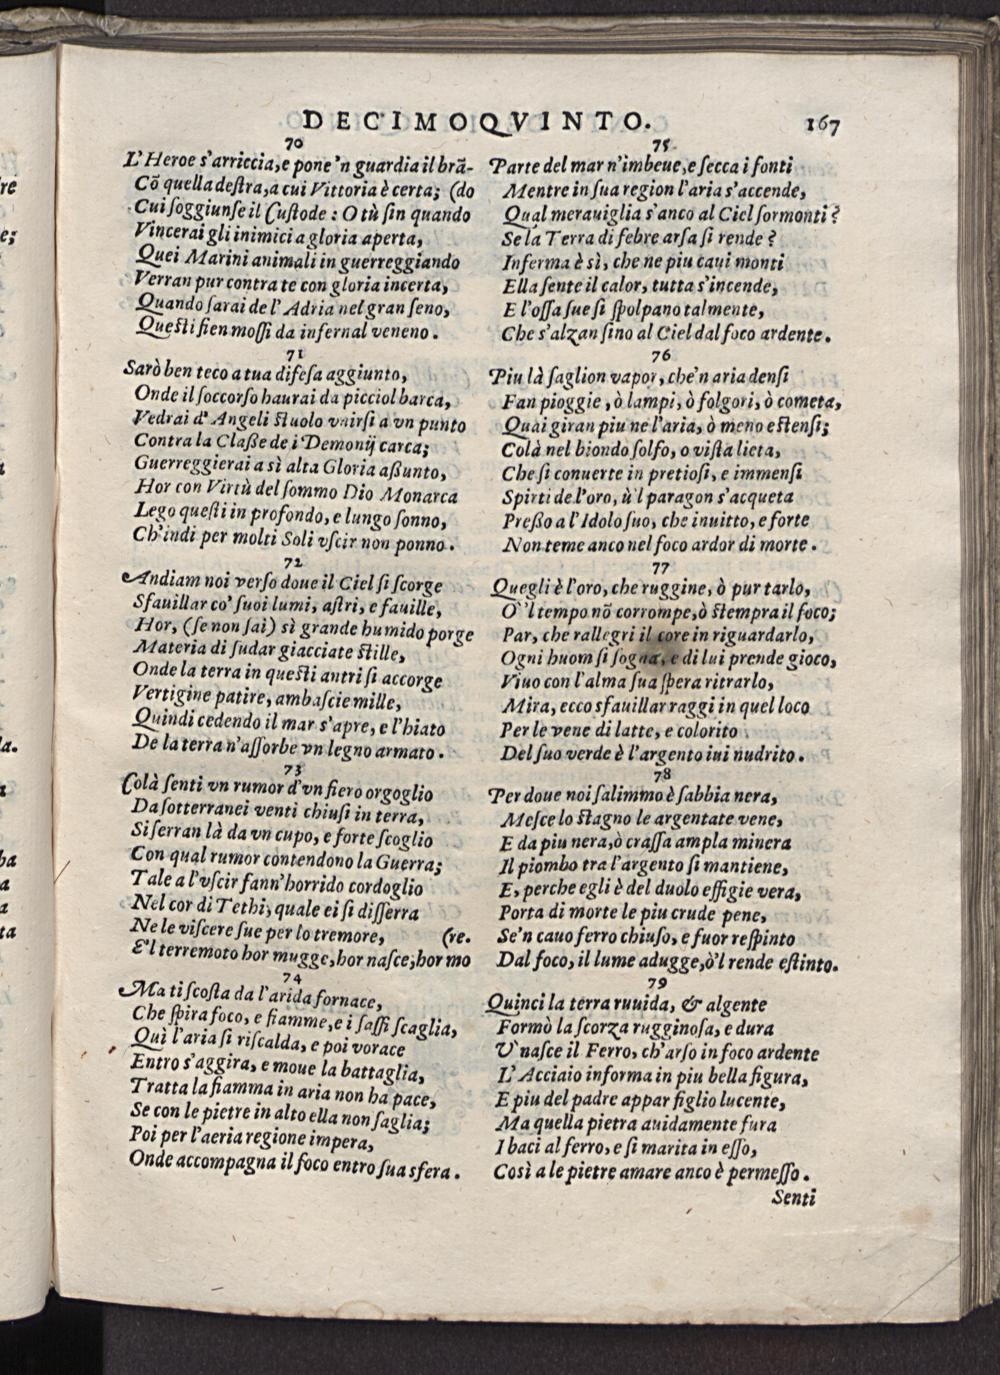 DECIMOQVINTO. 167
70
L'Heroe s'arriccia, e pone 'n guardia il brã-
Cõ quella destra, a cui Vittoria è certa; (do
Cui soggiunse il Custode: O tù sin quando
Vincerai gli inimici a gloria aperta,
Quei Marini animali in guerreggiando
Verran pur contra te con gloria incerta,
Quando sarai de l' Adria nel gran seno,
Questi fien mossi da infernal veneno.
71
Sarò ben teco a tua difesa aggiunto,
Onde il soccorso haurai da picciol barca,
Vedrai d' Angeli stuolo vnirsi a vn punto
Contra la Classe de i Demonij carca;
Guerreggierai a sì alta Gloria assunto,
Hor con Virtù del sommo Dio Monarca
Lego questi in profondo, e lungo sonno,
Ch'indi per molti Soli vscir non ponno.
72
Andiam noi verso doue il Ciel si scorge
Sfauillar co' suoi lumi, astri, e fauille,
Hor, (se non sai) sì grande humido porge
Materia di sudar giacciate stille,
Onde la terra in questi antri si accorge
Vertigine patire, ambascie mille,
Quindi cedendo il mar s'apre, e l'hiato
De la terra n'assorbe vn legno armato.
73
Colà senti vn rumor d'vn fiero orgoglio
Da sotterranei venti chiusi in terra,
Si serran là da vn cupo, e forte scoglio
Con qual rumor contendono la Guerra;
Tale a l'vscir fann'horrido cordoglio
Nel cor di Tethi, quale ei si disserra
Ne le viscere sue per lo tremore, (re.
E'l terremoto hor mugge, hor nasce, hor mo
74
Ma ti scosta da l'arida fornace,
Che spira foco, e fiamme, e i sassi scaglia,
Quì l'aria si riscalda, e poi vorace
Entro s'aggira, e moue la battaglia,
Tratta la fiamma in aria non ha pace,
Se con le pietre in alto ella non saglia;
Poi per l'aeria regione impera,
Onde accompagna il foco entro sua sfera.
75
Parte del mar n'imbeue, e secca i fonti
Mentre in sua region l'aria s'accende,
Qual merauiglia s'anco al Ciel sormonti?
Se la Terra di febre arsa si rende?
Inferma è sì, che ne piu caui monti
Ella sente il calor, tutta s'incende,
E l'ossa sue si spolpano talmente,
Che s'alzan sino al Ciel dal foco ardente.
76
Piu là saglion vapor, che'n aria densi
Fan pioggie, ò lampi, ò folgori, ò cometa,
Quai giran piu ne l'aria, ò meno estensi;
Colà nel biondo solfo, o vista lieta,
Che si conuerte in pretiosi, e immensi
Spirti de l'oro, ù'l paragon s'acqueta
Presso a l'Idolo suo, che inuitto, e forte
Non teme anco nel foco ardor di morte.
77
Quegli è l'oro, che ruggine, ò pur tarlo,
O' 'l tempo nõ corrompe, ò stempra il foco;
Par, che rallegri il core in riguardarlo,
Ogni huom si sogna, e di lui prende gioco,
Viuo con l'alma sua spera ritrarlo,
Mira, ecco sfauillar raggi in quel loco
Per le vene di latte, e colorito
Del suo verde è l'argento iui nudrito.
78
Per doue noi salimmo è sabbia nera,
Mesce lo stagno le argentate vene,
E da piu nera, ò crassa ampla minera
Il piombo tra l'argento si mantiene,
E, perche egli è del duolo effigie vera,
Porta di morte le piu crude pene,
Se'n cauo ferro chiuso, e fuor respinto
Dal foco, il lume adugge, ò'l rende estinto.
79
Quinci la terra ruuida, & algente
Formò la scorza rugginosa, e dura
V' nasce il Ferro, ch'arso in foco ardente
L' Acciaio informa in piu bella figura,
E piu del padre appar figlio lucente,
Ma quella pietra auidamente fura
I baci al ferro, e si marita in esso,
Così a le pietre amare anco è permesso.
Senti